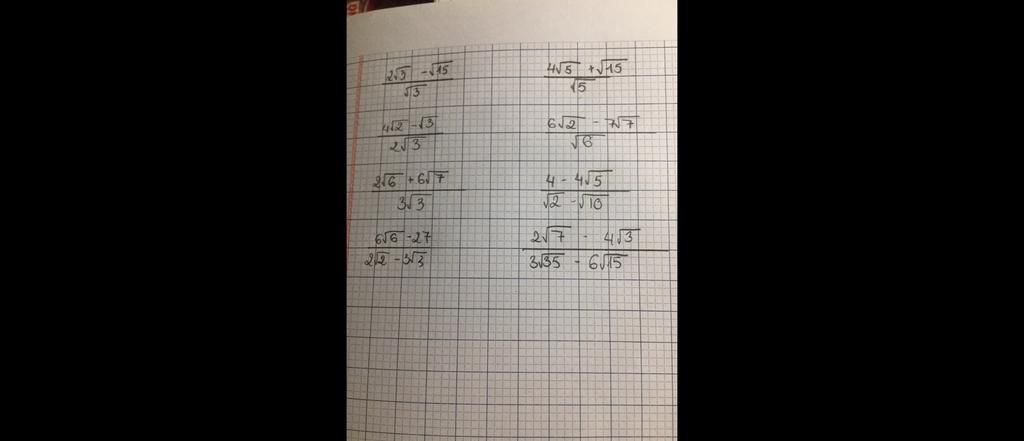 (2√3 - √15)/√3 (4√5 + √15)/√5
(4√2 - √3)/(2√3) (6√2 - 7√7)/√6
(2√6 + 6√7)/(3√3) (4 - 4√5)/(√2 - √10)
(6√6 - 27)/(2√2 - 3√3) (2√7 - 4√3)/(3√35 - 6√15)